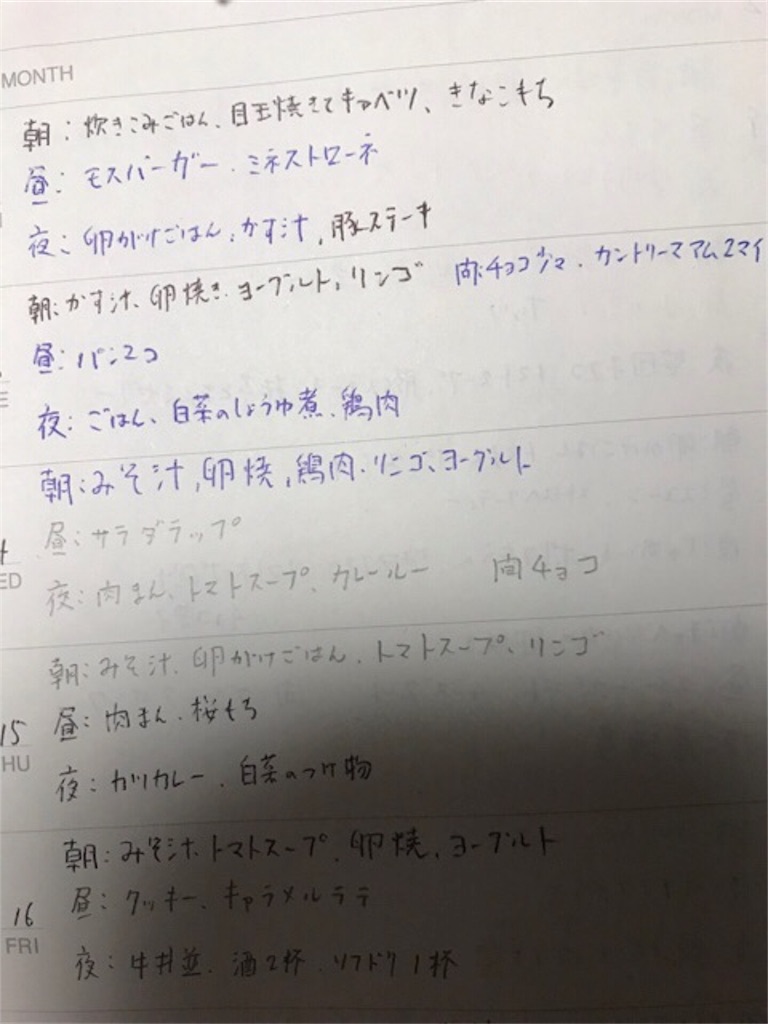 MONTH
朝：炊きこみごはん、目玉焼きとキャベツ、きなこもち
昼：モスバーガー、ミネストローネ
夜：卵がけごはん、かす汁、豚ステーキ
朝：かす汁、卵焼き、ヨーグルト、リンゴ 間：チョコ少々、カントリーマアム2マイ
昼：パン2コ
夜：ごはん、白菜のしょうゆ煮、鶏肉
朝：みそ汁、卵焼、鶏肉、リンゴ、ヨーグルト
昼：サラダラップ
ED
夜：肉まん、トマトスープ、カレールー 間チョコ
朝：みそ汁、卵がけごはん、トマトスープ、リンゴ
15 昼：肉まん、桜もち
HU
夜：カツカレー、白菜のつけ物
朝：みそ汁、トマトスープ、卵焼、ヨーグルト
16 昼：クッキー、キャラメルラテ
FRI
夜：牛丼並、酒2杯、ソフドリ1杯